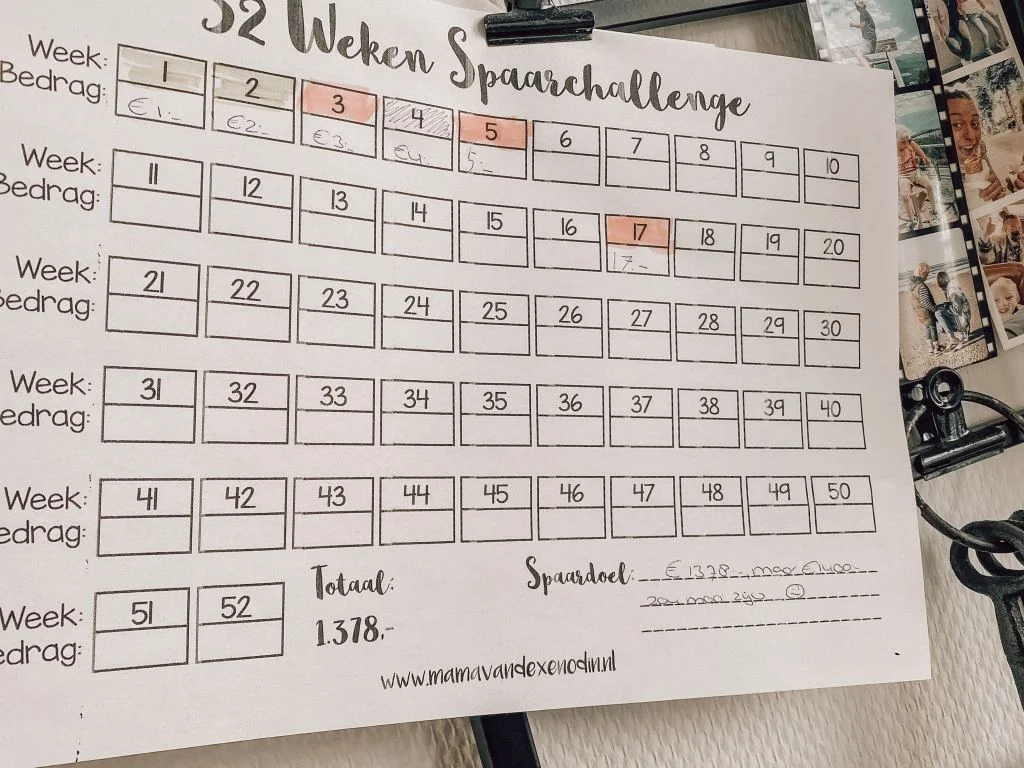 52 Weken Spaarchallenge
Week: 1 2 3 4 5 6 7 8 9 10
Bedrag: €1.- €2.- €3.- €4.- 5.-
Week: 11 12 13 14 15 16 17 18 19 20
Bedrag: 17.-
Week: 21 22 23 24 25 26 27 28 29 30
Bedrag:
Week: 31 32 33 34 35 36 37 38 39 40
edrag:
Week: 41 42 43 44 45 46 47 48 49 50
edrag:
Week: 51 52
edrag:
Totaal:
1.378,-
Spaardoel: € 1378.-, maar €1400.-
zou mooi zijn ☺
www.mamavandexenodin.nl